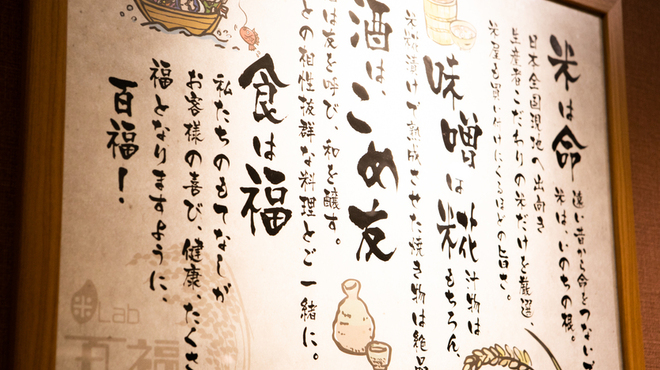 米は命
遠い昔から命をつないで
米は、いのちの根。
日本全国現地の出向き
生産者こだわりの米だけを厳選、
米屋も買い付けにくるほどの旨さ。
味噌は糀
汁物は
もちろん、
米糀漬けで熟成させた焼き物は絶品
酒は、こめ友
は友を呼び、和を醸す。
との相性抜群な料理とご一緒に。
食は福
私たちのもてなしが
お客様の喜び、健康、たくさ
福となりますように、
百福！
米Lab
百福